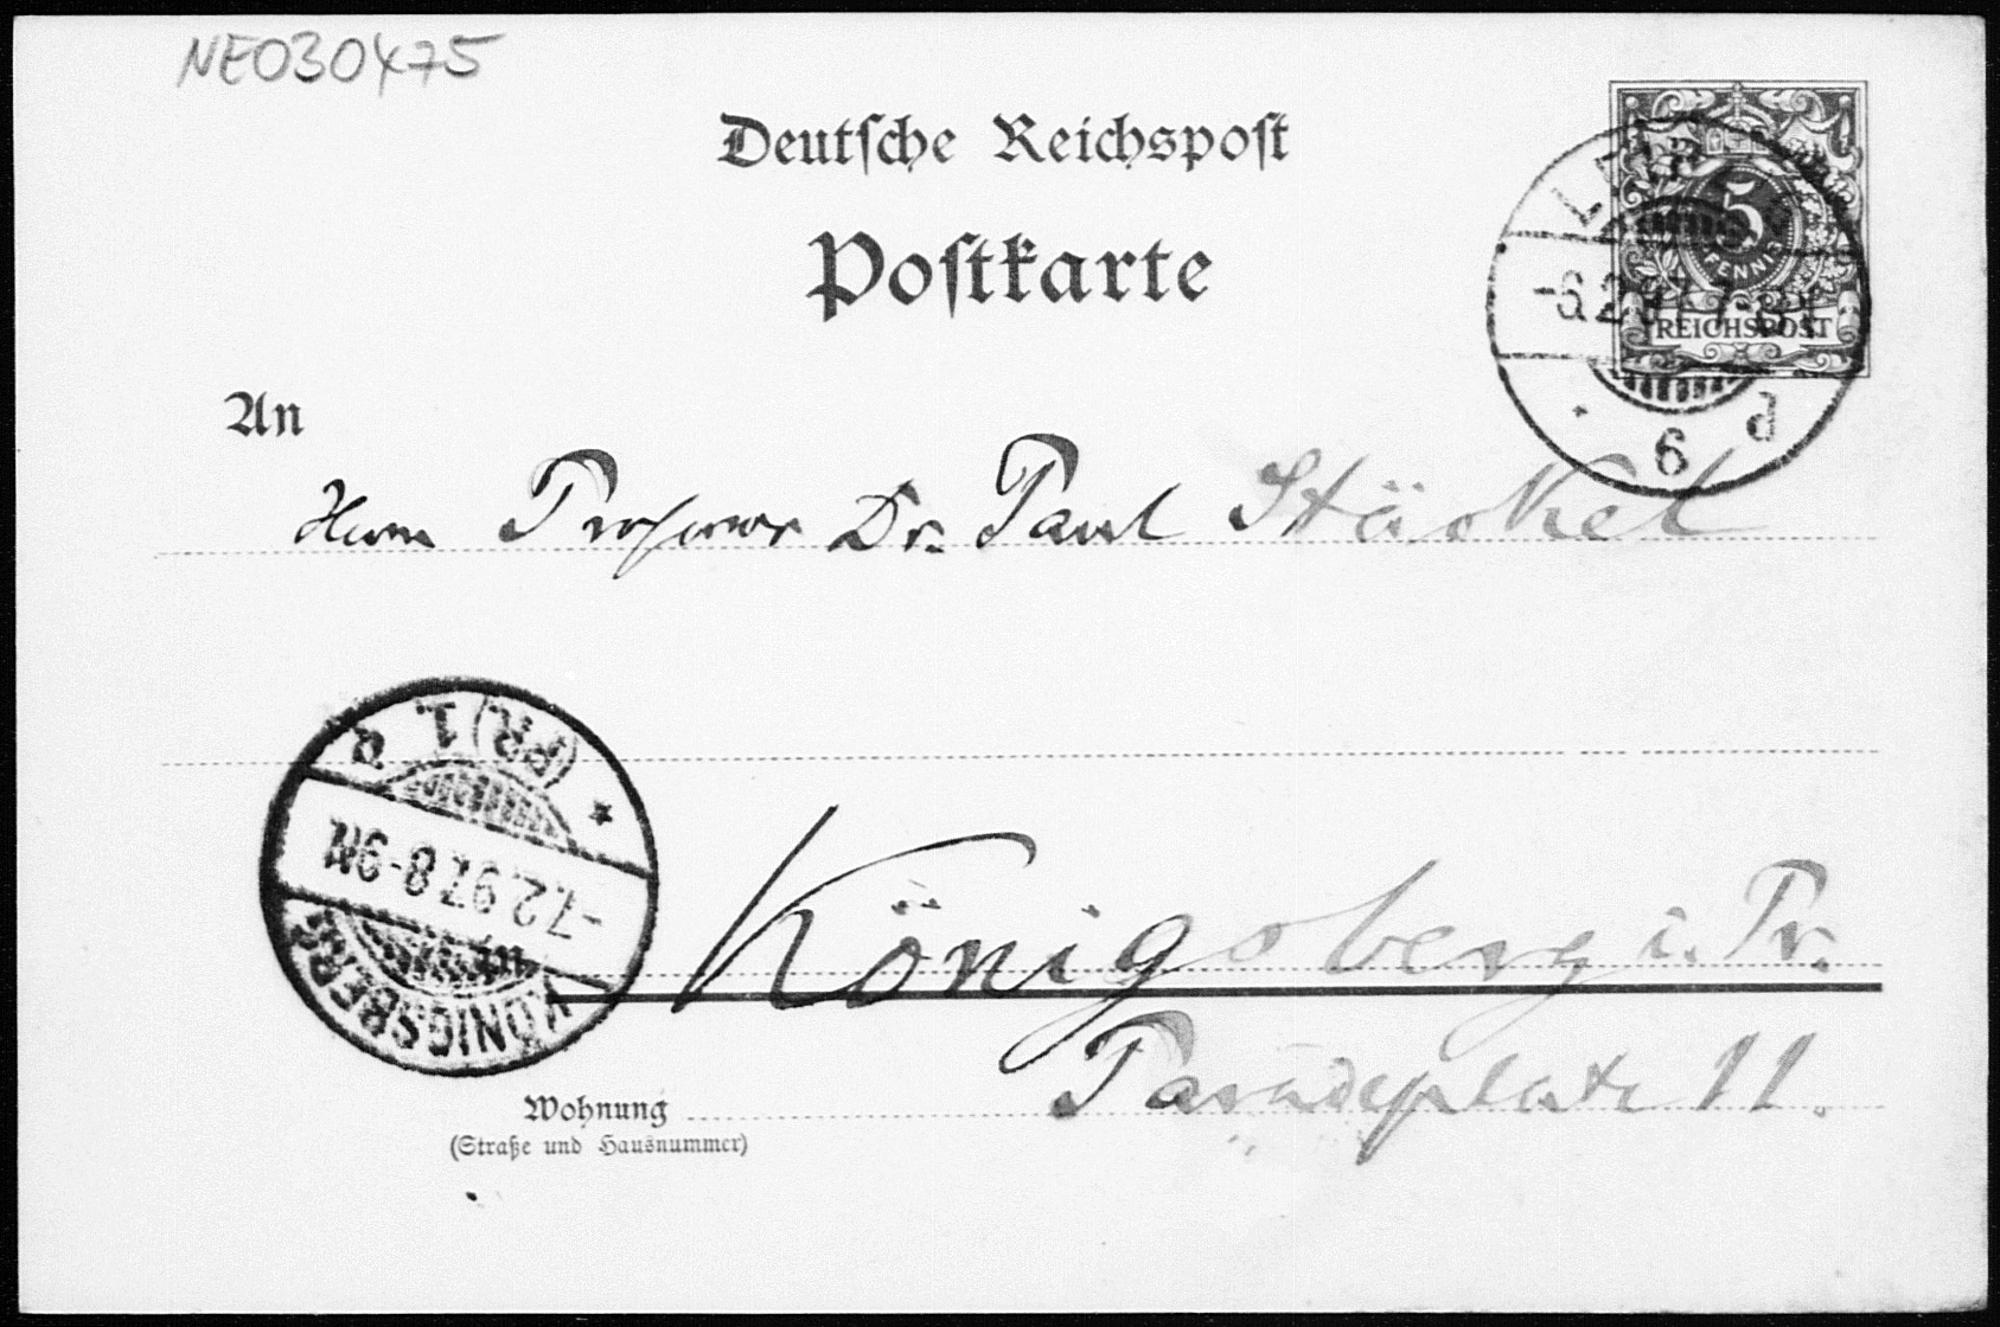 NE030475
Deutsche Reichspost
Postkarte
5
PFENNIG
REICHSPOST
-6.2.97. 7-8N
6 d
An
Herrn Professor Dr. Paul Stäckel
(PR.) 1. a
-7.2.97. 8-9N
KÖNIGSBERG
Königsberg i. Pr.
Paradeplatz 11.
Wohnung
(Straße und Hausnummer)